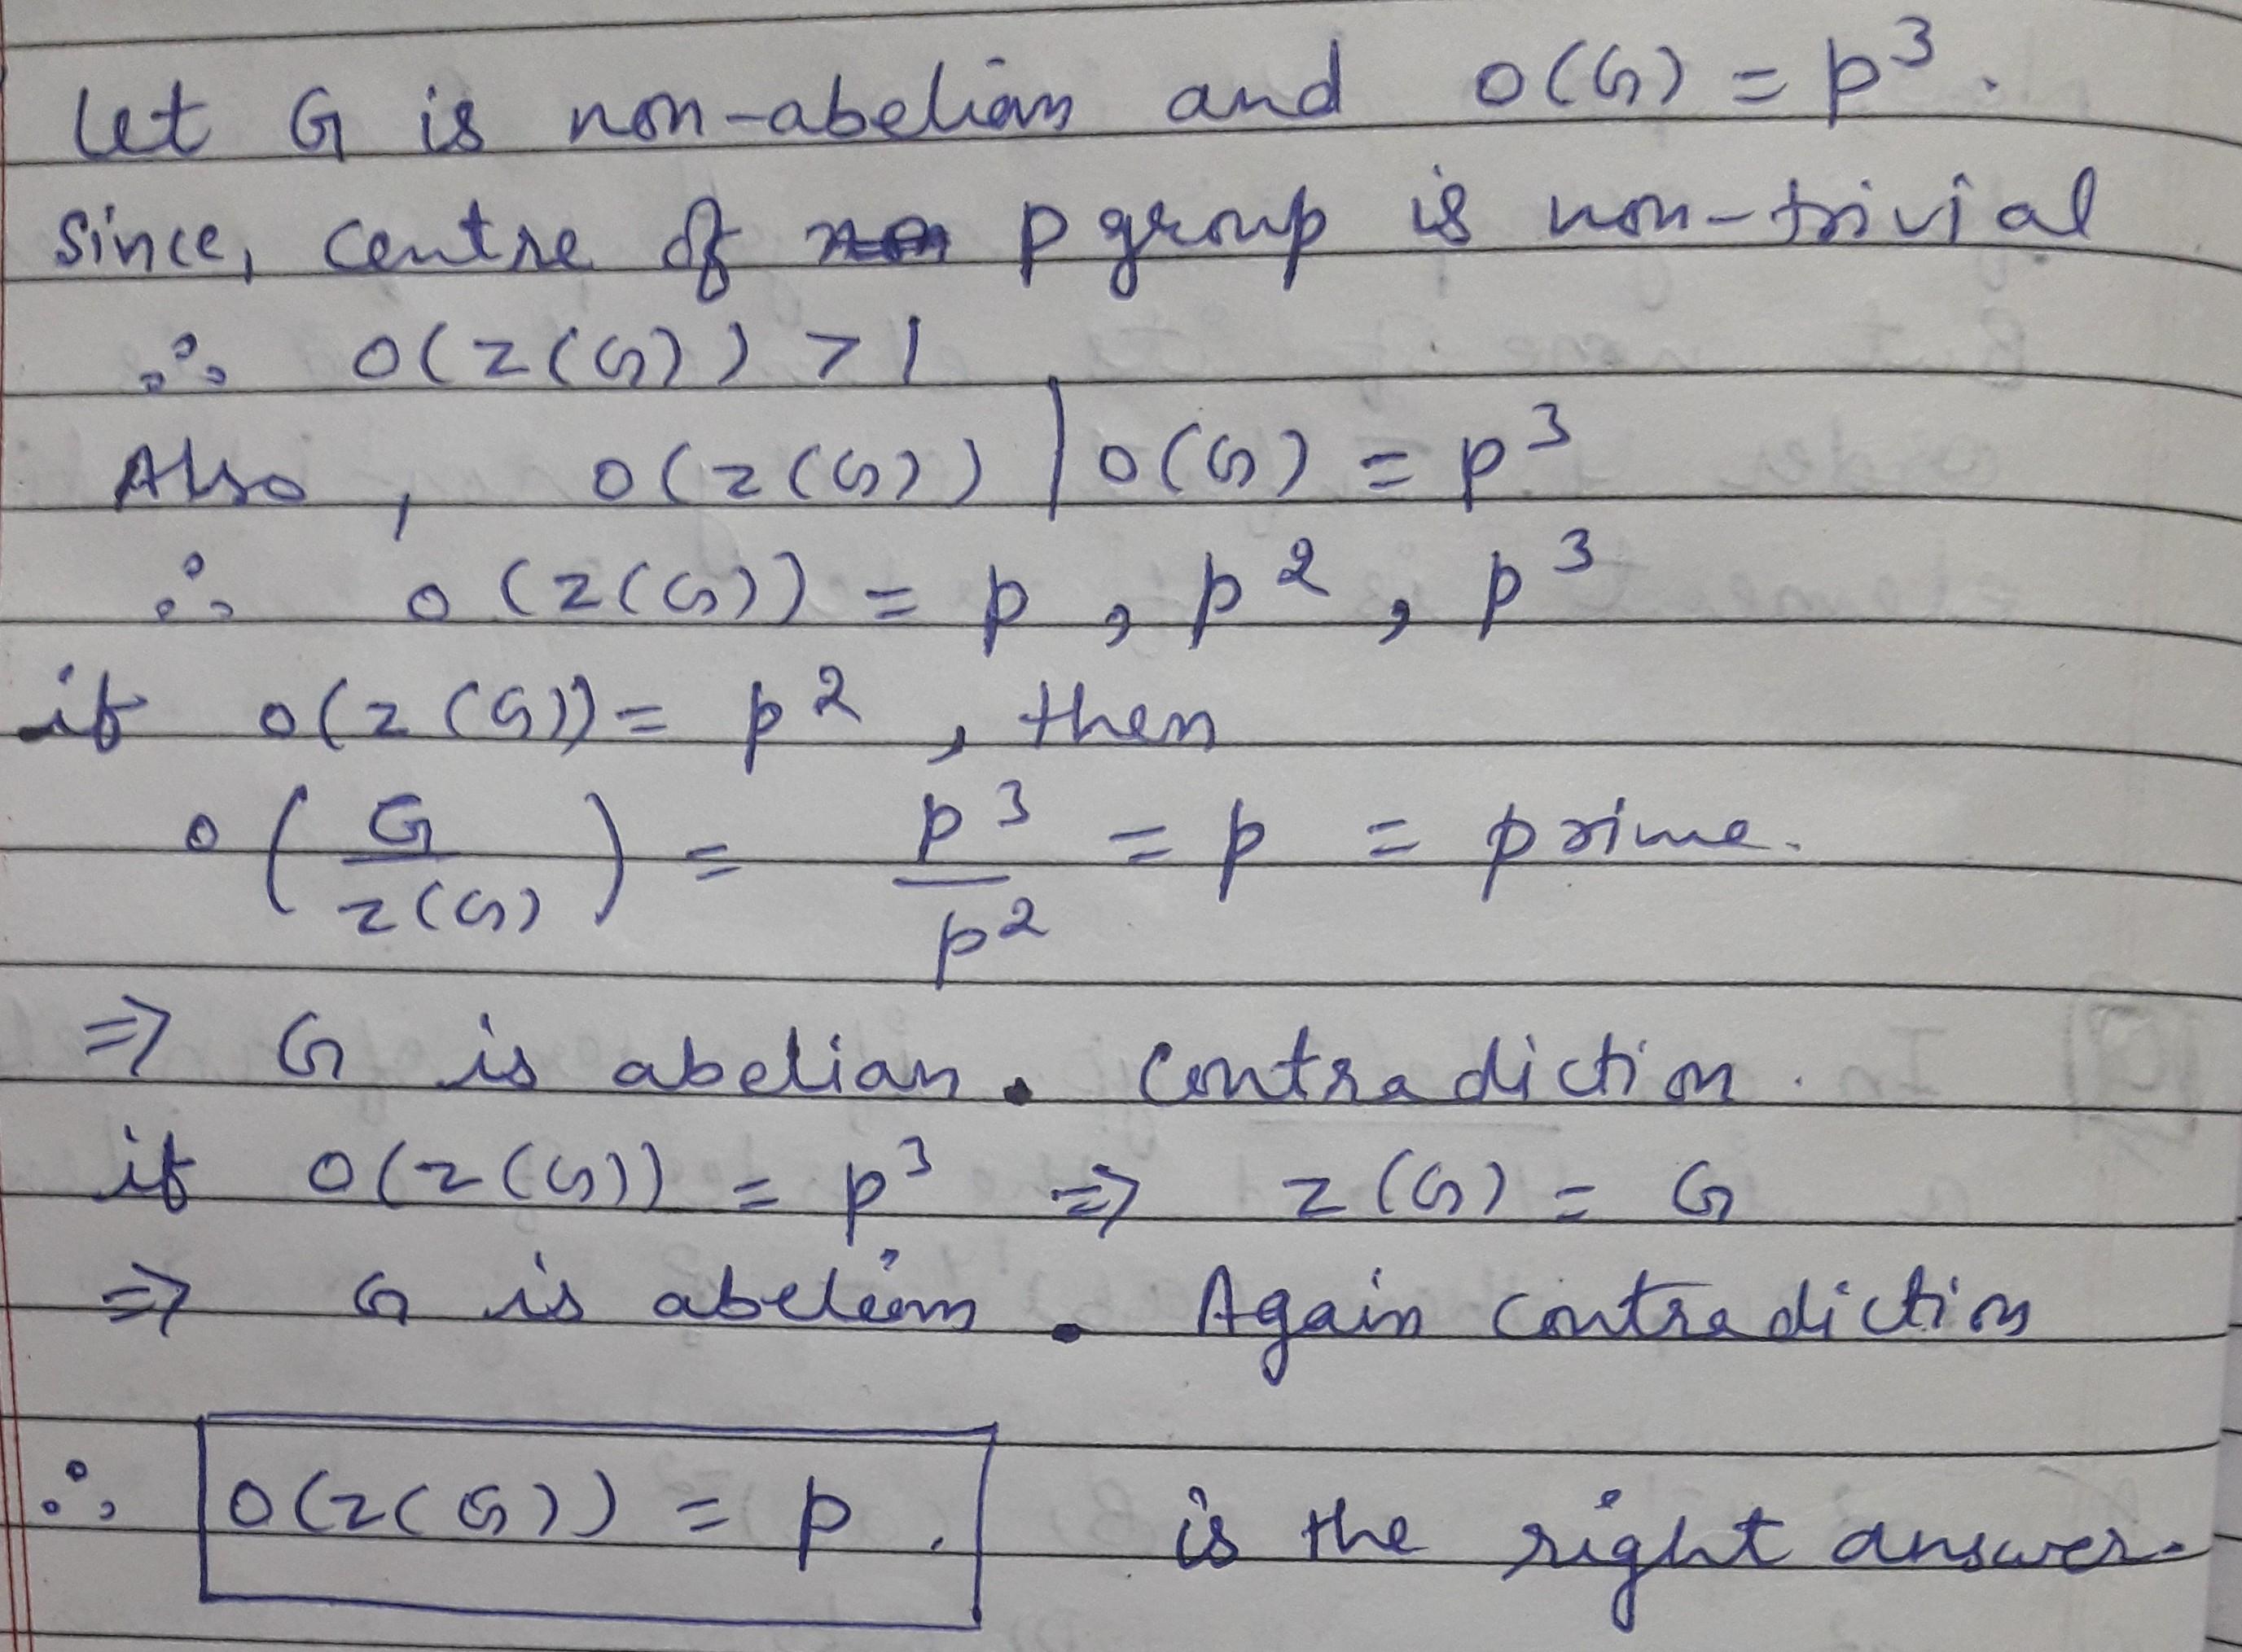 Let G is non-abelian and o(G) = p³.
Since, centre of p group is non-trivial
∴ o(z(G)) > 1
Also, o(z(G)) | o(G) = p³
∴ o(z(G)) = p, p², p³
if o(z(G)) = p², then
o(G/z(G)) = p³/p² = p = prime.
⇒ G is abelian. Contradiction.
if o(z(G)) = p³ ⇒ z(G) = G
⇒ G is abelian. Again contradiction
∴ o(z(G)) = p. is the right answer.